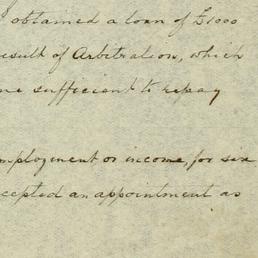 obtained a loan of £1000
result of Arbitration, which
me sufficient to repay
employment or income, for six
accepted an appointment as